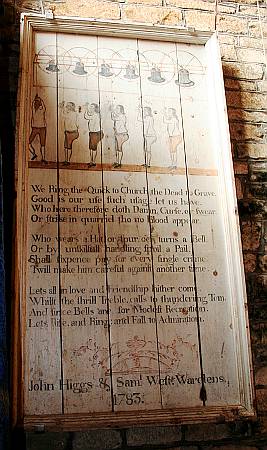 We Ring the Quick to Church, the Dead to Grave,
Good is our use such usage let us have.
Who here therefore doth Damn, Curse, or swear,
Or strike in quarrel tho no Blood appear.
Who wears a Hat or Spur, or turns a Bell
Or by unskilfull handling a Pail,
Shall sixpence pay for every single crime
Twill make him carefull against another time.
Lets all in love and Friendship hither come
Whilst the shrill Treble, calls to thundering Tom,
And since Bells are for Modest Recreation,
Lets rise, and Ring, and Fall to Admiration.
John Higgs & Saml West Wardens,
1783.